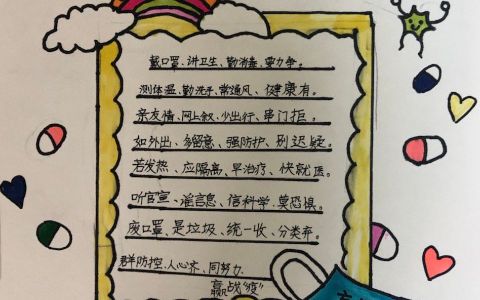 戴口罩、讲卫生、勤消毒、要力争。
测体温、勤洗手、常通风、健康有。
亲友情、网上叙、少出行、串门拒。
如外出、多留意、强防护、别迟疑。
若发热、应隔离、早治疗、快就医。
听官宣、谣言息、信科学、莫恐惧。
废口罩、是垃圾、统一收、分类弃。
群防控、人心齐、同努力、
赢战"疫"